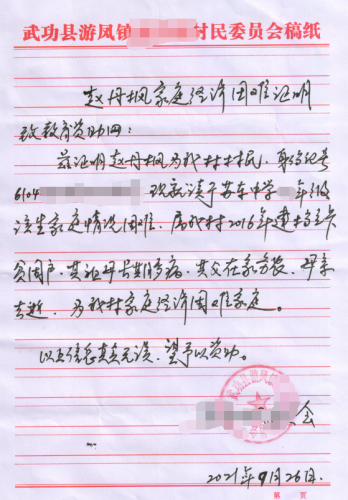 武功县游凤镇 村民委员会稿纸
赵丹枫家庭经济困难证明
致教育资助网：
兹证明赵丹枫为我村村民，身份证号
6104 现就读于苏东中学 年级
该生家庭情况困难，属我村2016年建档立卡
贫困户，其祖母长期多病，其父在家务农，母亲
去逝，为我村家庭经济困难家庭。
以上信息真实无误，望予以资助。
武功县游凤
会
2021年9月26日.
第 页